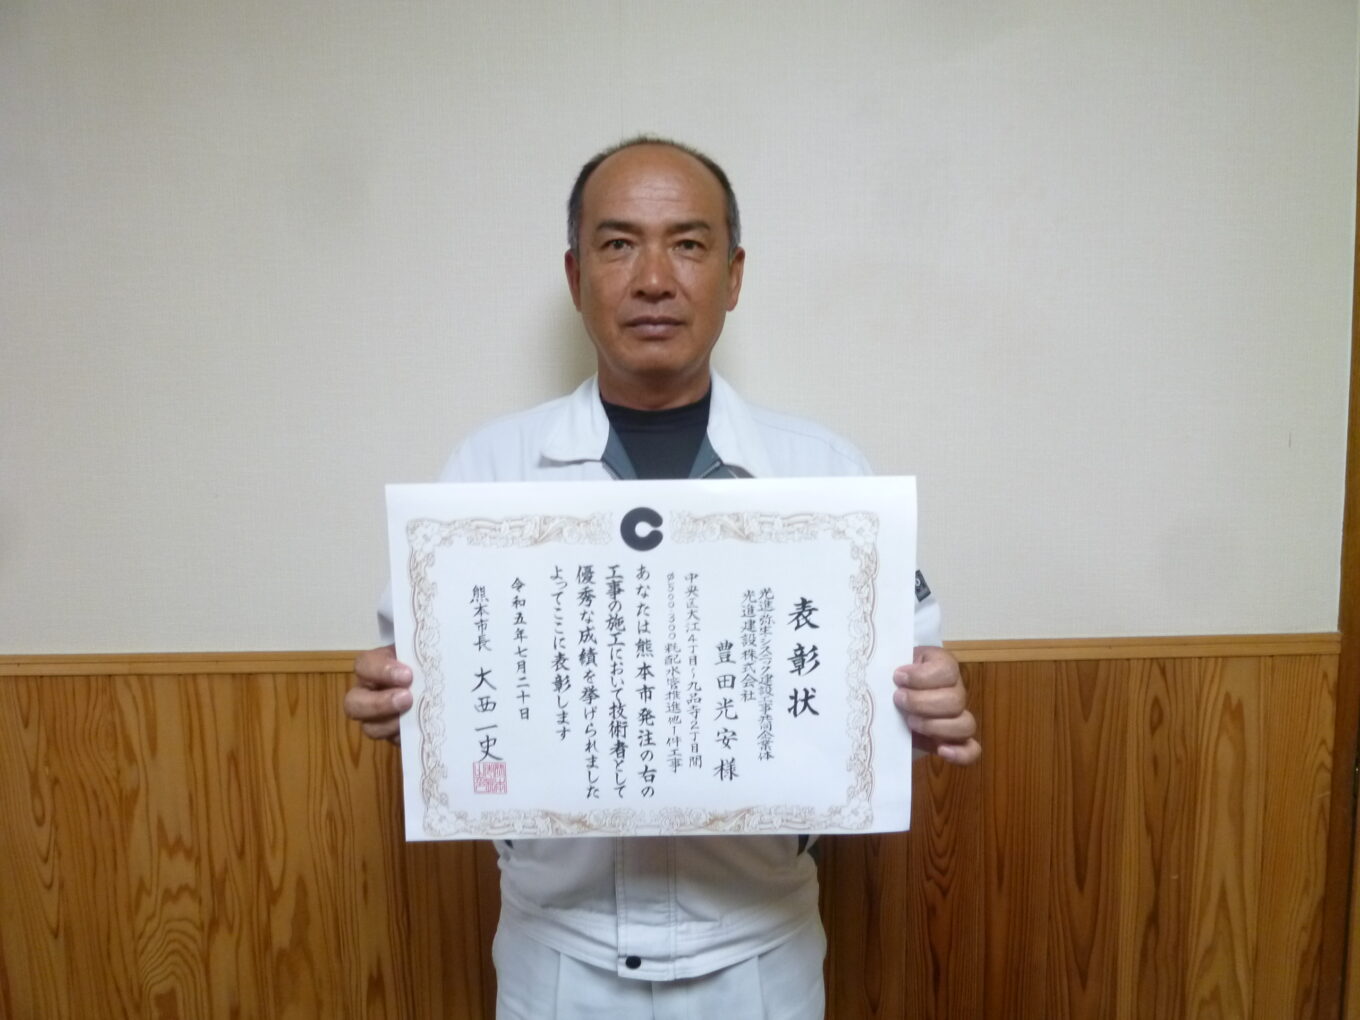 表彰状
光進・弥生・システック建設工事共同企業体
光進建設株式会社
豊田光安様
中央区大江4丁目～九品寺2丁目間
φ500・300粍配水管推進他1件工事
あなたは熊本市発注の右の
工事の施工において技術者として
優秀な成績を挙げられました
よってここに表彰します
令和五年七月二十日
熊本市長 大西一史